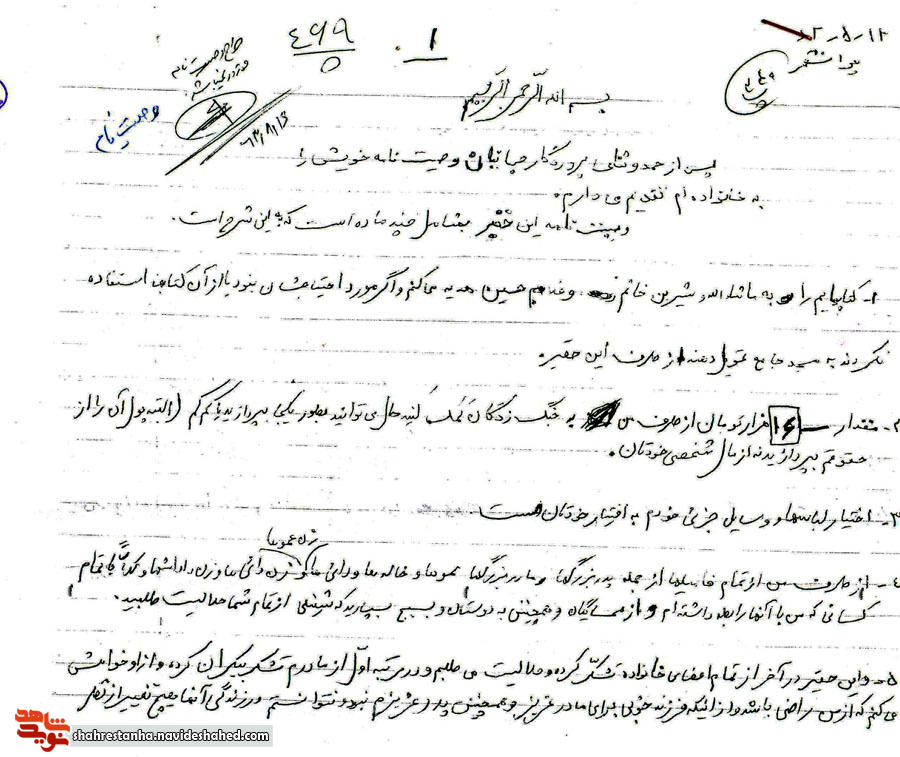 ۱۲-۵-۶۲
۴۶۹
۵
۱
وصیت نامه
۶۳/۸/۱۶
بسم الله الرحمن الرحیم
پس از حمد و ثنای پروردگار جهانیان وصیت نامه خویش را
به خانواده ام تقدیم می دارم.
وصیت نامه این حقیر شامل چند ماده است که به این شرح است.
۱- کتابهایم را به ماشاءالله و شیرین خانم و غلام حسین هدیه می کنم و اگر مورد احتیاجشان نبود یا از آن کتابها استفاده
نکردند به مسجد جامع تحویل دهند از طرف این حقیر.
۲- مقدار ۱۶ هزار تومان از طرف من به جنگ زدگان کمک کنید حال می توانید بطور یکجا بپردازید یا کم کم (البته پول آن را از
حقوقم بپردازید نه از مال شخصی خودتان.
۳- اختیار لباسها و وسایل جزئی خودم به اختیار خودتان هست.
زن عموها
۴- از طرف من از تمام فامیلها از جمله پدربزرگها و مادربزرگها عموها و خاله ها و دائی ها و زن دائی ها و زن داداشها و کلاً با تمام
کسانی که من با آنها رابطه داشته ام و از همسایگان و همچنین به دوستان و بسیج بسپارید که شغلی از تمام شما حلالیت طلبید.
۵- و این حقیر در آخر از تمام اعضای خانواده تشکر کرده و حلالیت می طلبم و در مرتبه اول از مادرم تشکر بیکران کرده و از او خواهش
می کنم که از من راضی باشد و از اینکه فرزند خوبی برای مادر عزیز و همچنین پدر عزیزم نبودم و نتوانستم در زندگی آنها هیچ تغییر از نظر
نوید شاهد
shahrestanha.navideshahed.com